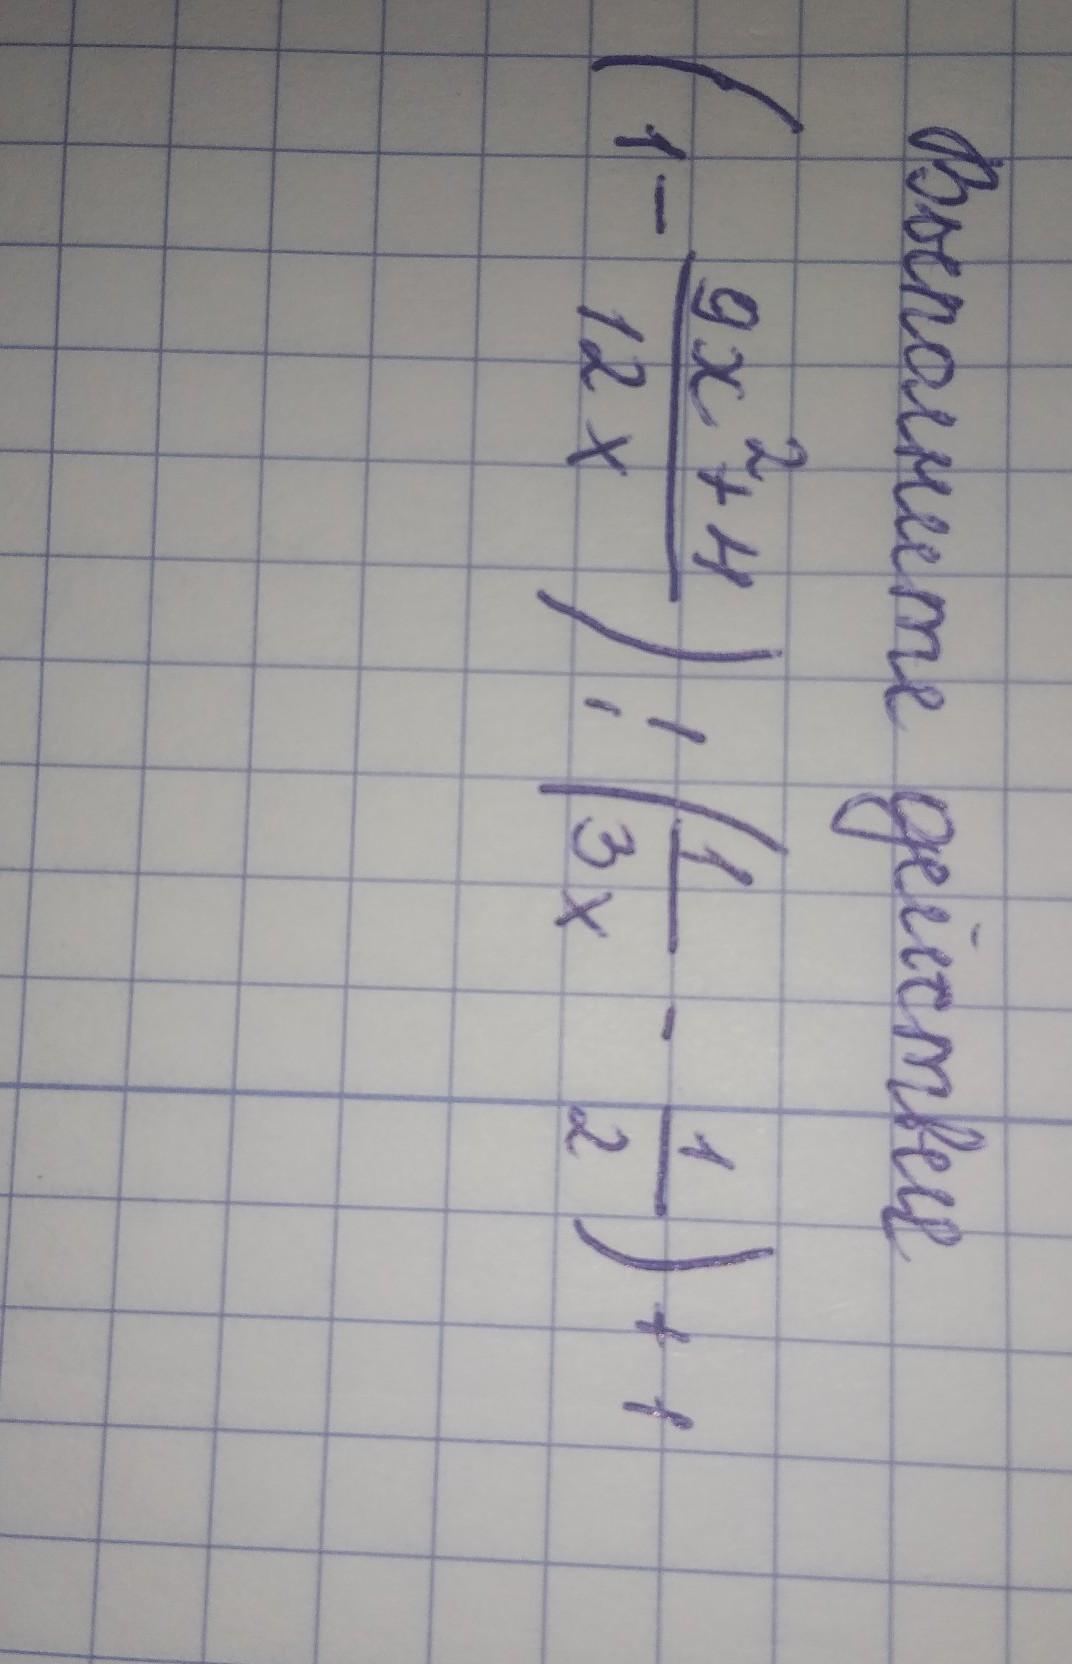 Выполните действия
(1 - \frac{9x^2+4}{12x}) : (\frac{1}{3x} - \frac{1}{2}) + 1